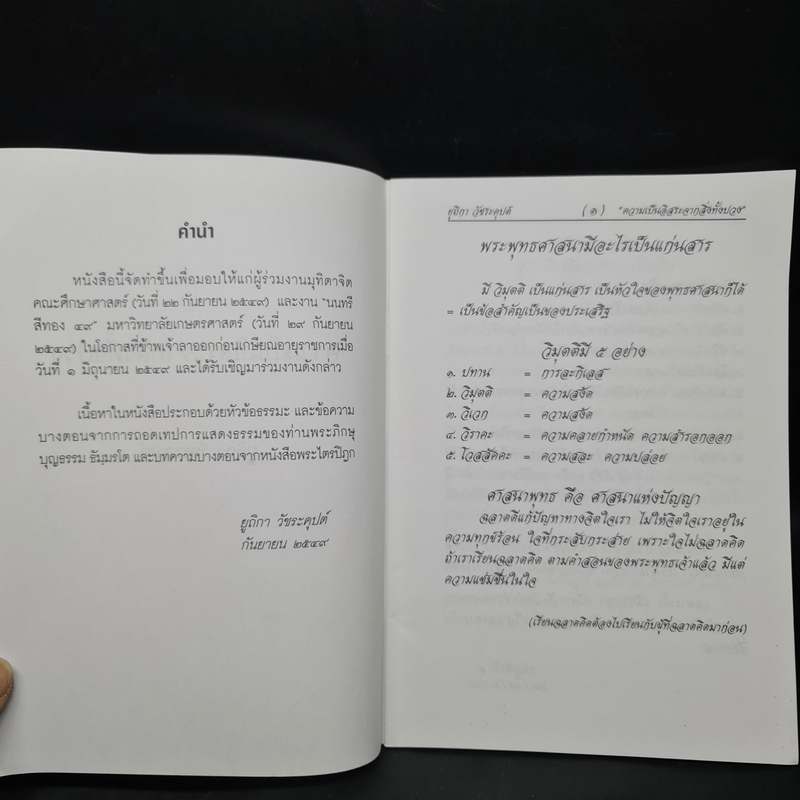 คำนำ
หนังสือนี้จัดทำขึ้นเพื่อมอบให้แก่ผู้ร่วมงานมุทิตาจิต
คณะศึกษาศาสตร์ (วันที่ ๒๒ กันยายน ๒๕๔๙) และงาน "นนทรี
สีทอง ๔๙" มหาวิทยาลัยเกษตรศาสตร์ (วันที่ ๒๙ กันยายน
๒๕๔๙) ในโอกาสที่ข้าพเจ้าลาออกก่อนเกษียณอายุราชการเมื่อ
วันที่ ๑ มิถุนายน ๒๕๔๙ และได้รับเชิญมาร่วมงานดังกล่าว
เนื้อหาในหนังสือประกอบด้วยหัวข้อธรรมะ และข้อความ
บางตอนจากการถอดเทปการแสดงธรรมของท่านพระภิกษุ
บุญธรรม ธัมฺมรโต และบทความบางตอนจากหนังสือพระไตรปิฎก
ยูถิกา วัชระคุปต์
กันยายน ๒๕๔๙
ยูถิกา วัชระคุปต์ (๑) "ความเป็นอิสระจากสิ่งทั้งปวง"
พระพุทธศาสนามีอะไรเป็นแก่นสาร
มี วิมุตติ เป็นแก่นสาร เป็นหัวใจของพุทธศาสนาก็ได้
= เป็นข้อสำคัญเป็นของประเสริฐ
วิมุตติมี ๕ อย่าง
๑. ปทาน = การละกิเลส
๒. วิมุตติ = ความสงัด
๓. วิเวก = ความสงัด
๔. วิราคะ = ความคลายกำหนัด ความสำรอกออก
๕. โวสสัคคะ = ความสละ ความปล่อย
ศาสนาพุทธ คือ ศาสนาแห่งปัญญา
ฉลาดดีแก้ปัญหาทางจิตใจเรา ไม่ให้จิตใจเราอยู่ใน
ความทุกข์ร้อน ใจที่กระสับกระส่าย เพราะใจไม่ฉลาดคิด
ถ้าเราเรียนฉลาดคิด ตามคำสอนของพระพุทธเจ้าแล้ว มีแต่
ความแช่มชื่นในใจ
(เรียนฉลาดคิดต้องไปเรียนกับผู้ที่ฉลาดคิดมาก่อน)